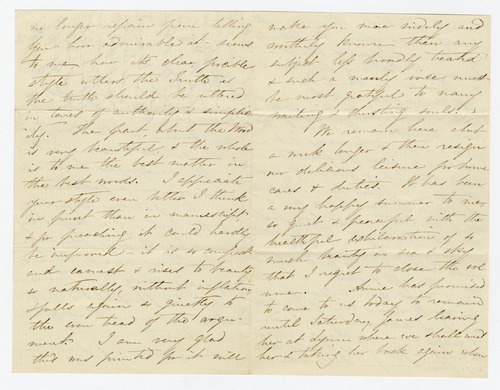 no longer refrain from telling
you how admirable it seems
to me how its clear forcible
style utters the Truth as
the truth should be uttered
in tones of authority & simplic
ity. The part about the Word
is very beautiful, & the whole
is to me the best matter in
the best words. I appreciate
your style even better I think
in print than in manuscript
& for preaching it could hardly
be improved - it is so compact
and earnest & rises to beauty
so naturally, without inflation
& falls again so quietly to
the even head of the argu-
ment. I am very glad
this was printed for it will
make you more widely and
worthily known than any
subject less broadly treated
& such a manly voice must
be most grateful to many
waiting & thirsting souls.
We remain here about
a week longer & then resign
our delicious leisure for home
cares & duties. It has been
a very happy summer to me,
so quiet & peaceful with the
healthful exhilaration of so
much beauty in sea & sky
that I regret to close the vol
ume. Annie has promised
to come to us today to remain
until Saturday James leaving
her at Lynn where we shall meet
her & taking her back again when